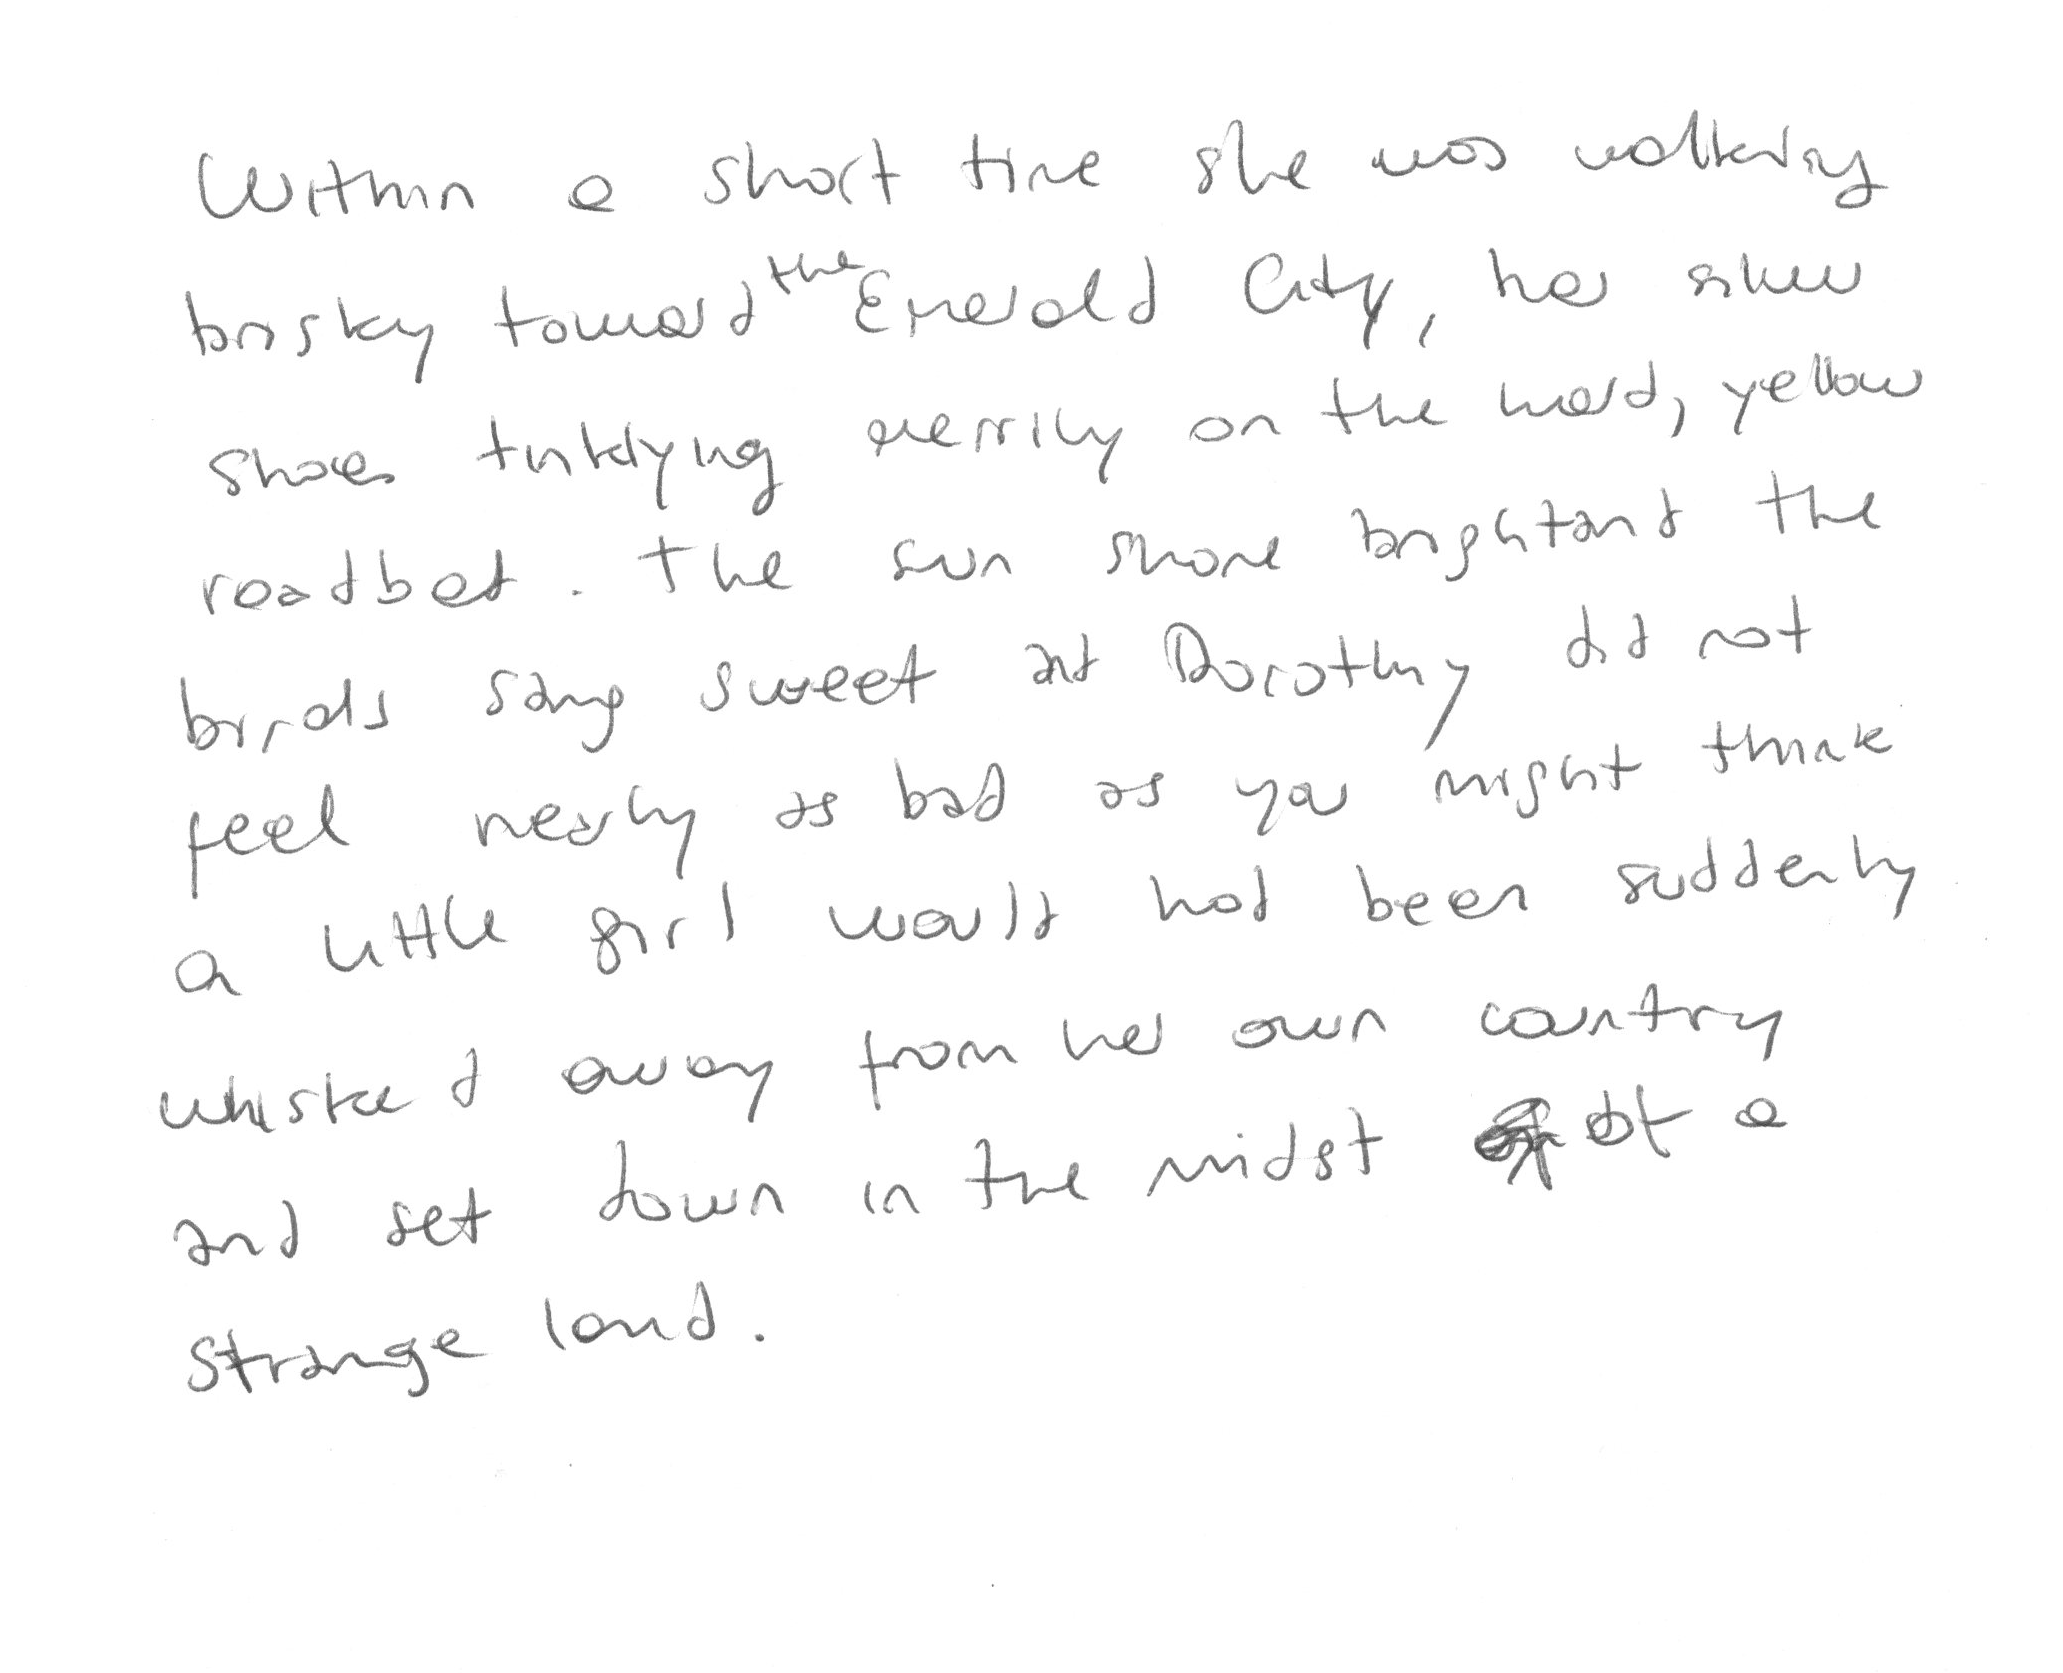 Within a short time she was walking
brisky toward the Emerald City, her silver
shoes tinklying merrily on the hard, yellow
roadbed. The sun shone bright and the
birds sang sweet and Dorothy did not
feel nearly as bad as you might think
a little girl would had been suddenly
whisked away from her own country
and set down in the midst of a
strange land.